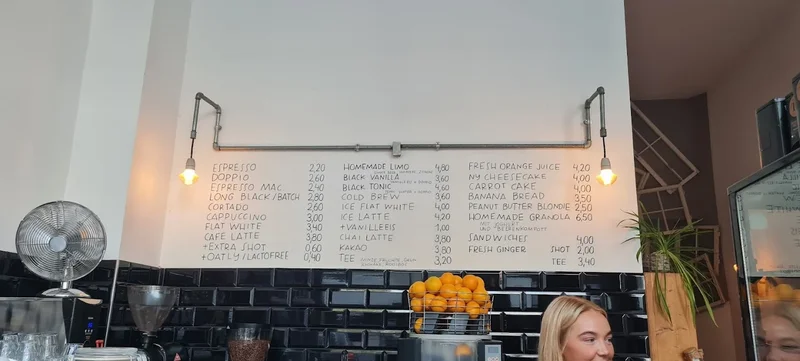 ESPRESSO 2,20
DOPPIO 2,60
ESPRESSO MAC. 2,40
LONG BLACK/BATCH 2,80
CORTADO 2,60
CAPPUCCINO 3,00
FLAT WHITE 3,40
CAFE LATTE 3,80
+EXTRA SHOT 0,60
+OATLY/LACTOFREE 0,40
HOMEMADE LIMO 4,80
BLACK VANILLA 3,60
BLACK TONIC 4,60
COLD BREW 3,60
ICE FLAT WHITE 4,00
ICE LATTE 4,20
+VANILLEEIS 1,00
CHAI LATTE 3,80
KAKAO 3,80
TEE 3,20
FRESH ORANGE JUICE 4,20
NY CHEESECAKE 4,00
CARROT CAKE 4,00
BANANA BREAD 3,50
PEANUT BUTTER BLONDIE 2,50
HOMEMADE GRANOLA 6,50
SANDWICHES 4,00
FRESH GINGER SHOT 2,00
TEE 3,40